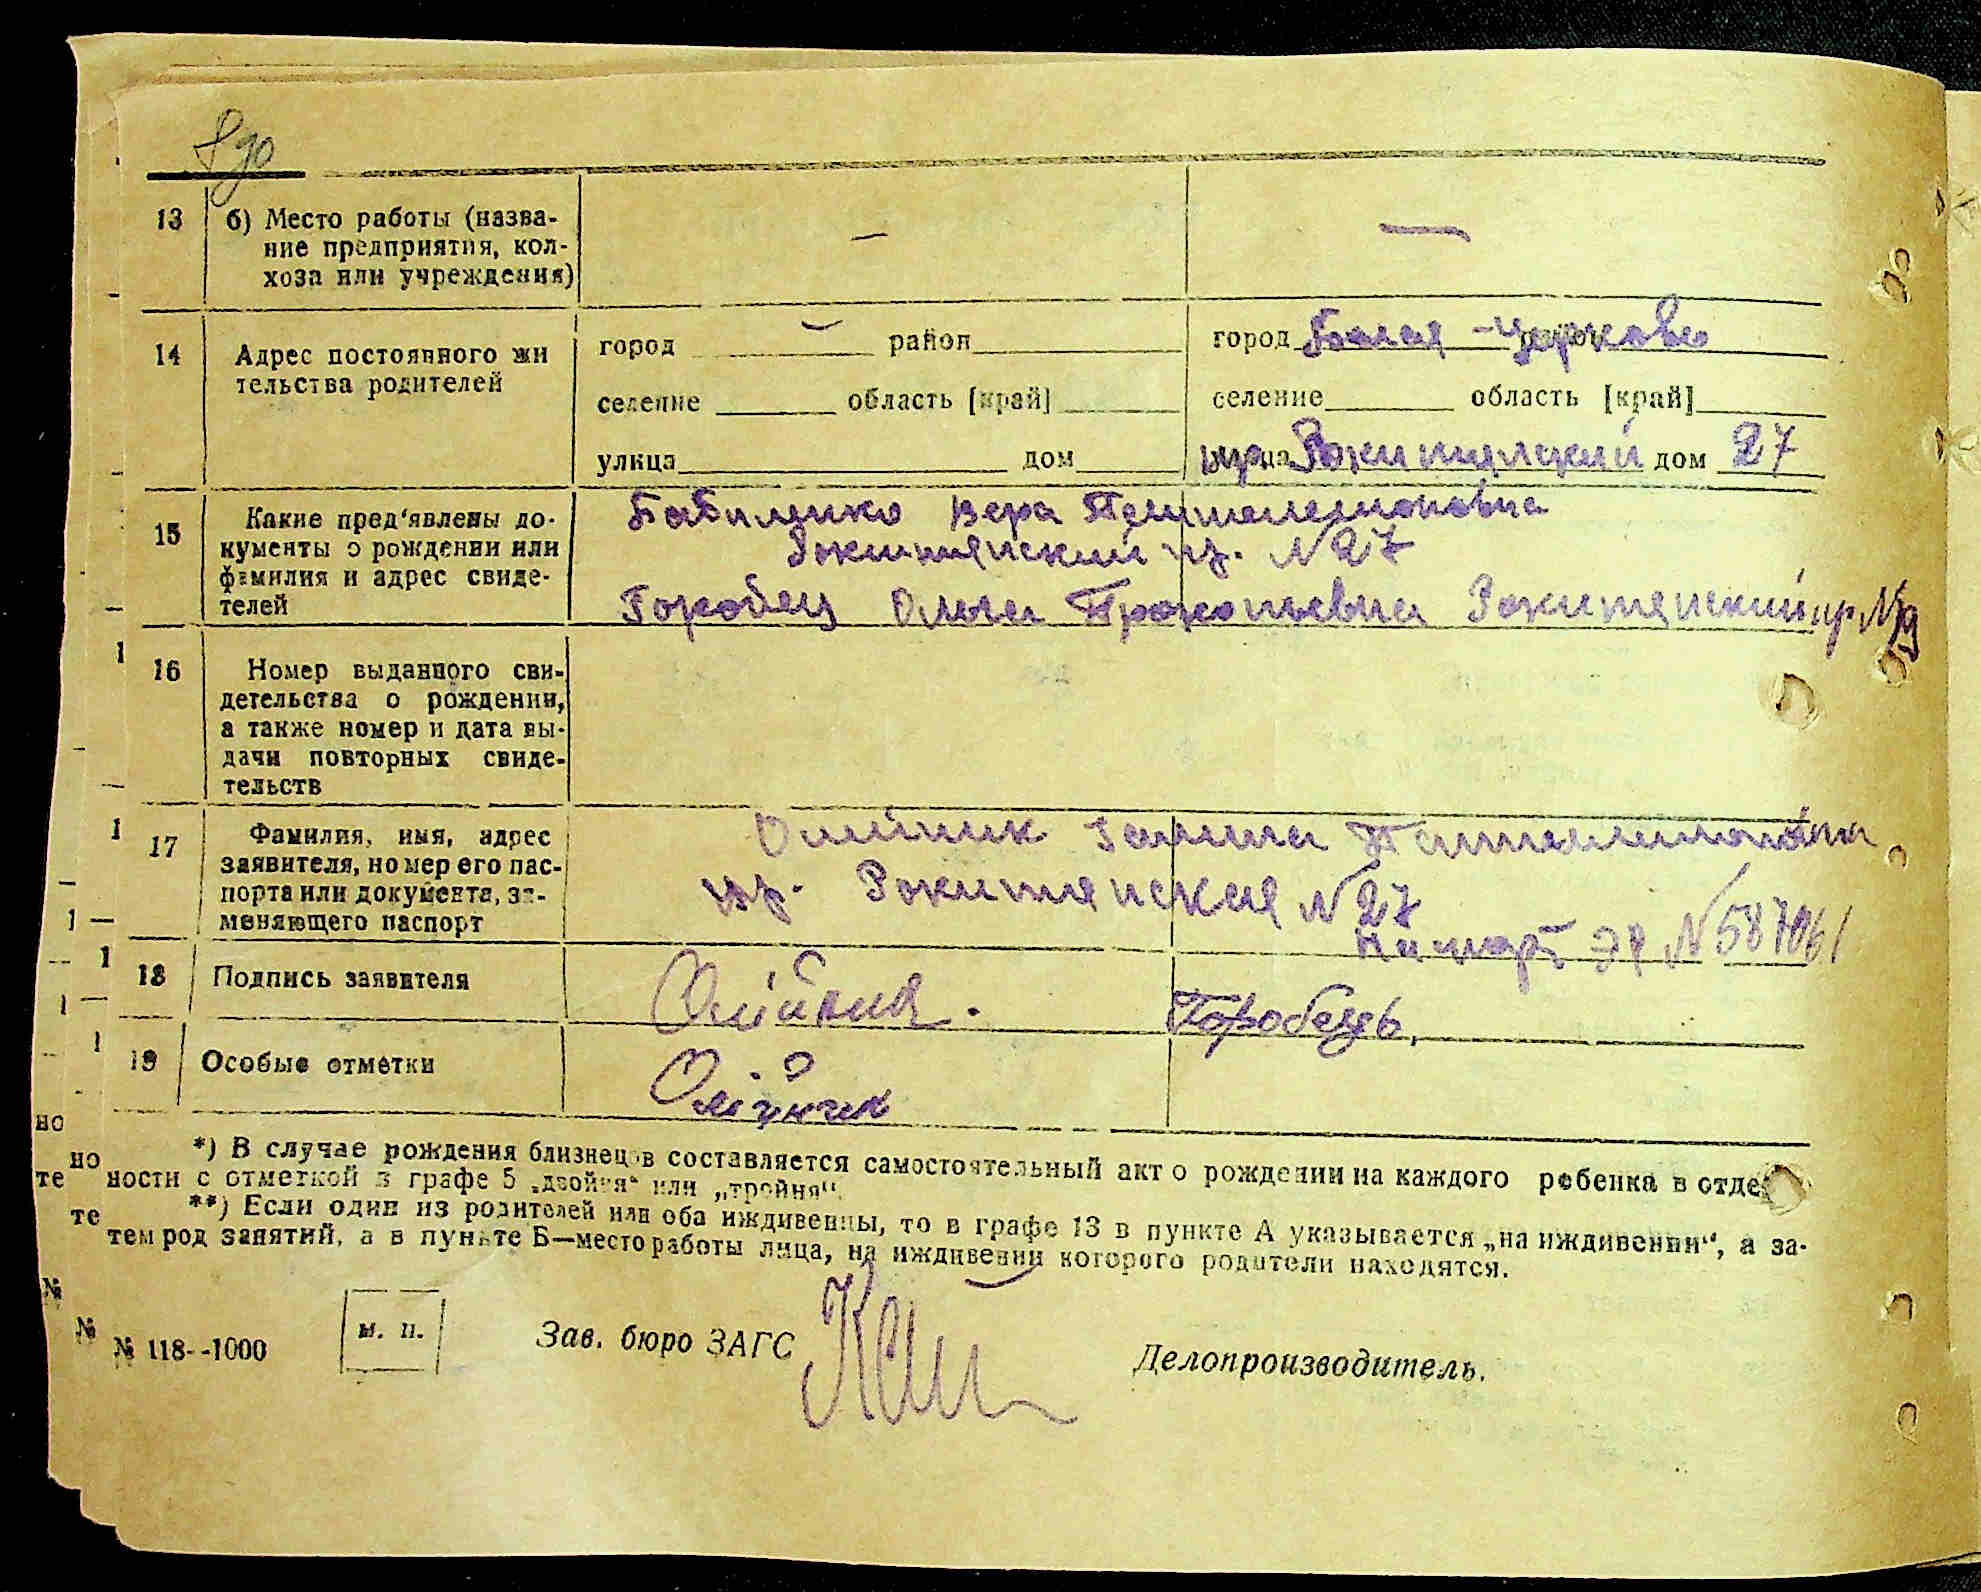 13
б) Место работы (назва-
ние предприятия, кол-
хоза или учреждения)
—
—
14
Адрес постоянного жи
тельства родителей
город район
селение область [край]
улица дом
город Белая - Церковь
селение область [край]
Рокитянский дом 27
15
Какие пред'явлены до-
кументы о рождении или
фамилия и адрес свиде-
телей
Вера Пантелемоновна
Рокитянский пр. N 27
Горобец Ольга Прокопьевна Рокитянский пр N
16
Номер выданного сви-
детельства о рождении,
а также номер и дата вы-
дачи повторных свиде-
тельств
17
Фамилия, имя, адрес
заявителя, номер его пас-
порта или документа, за-
меняющего паспорт
Олийник Галина Пантелемоновна
пр. Рокитянская N 27
Паспорт N 587061
18
Подпись заявителя
Горобець,
19
Особые отметки
Олійник
*) В случае рождения близнецов составляется самостоятельный акт о рождении на каждого ребенка в отде
ности с отметкой в графе 5 „двойня“ или „тройня“.
**) Если один из родителей или оба иждивенцы, то в графе 13 в пункте А указывается „на иждивении“, а за-
тем род занятий, а в пункте Б—место работы лица, на иждивении которого родители находятся.
№ 118--1000
м. п.
Зав. бюро ЗАГС
Делопроизводитель.